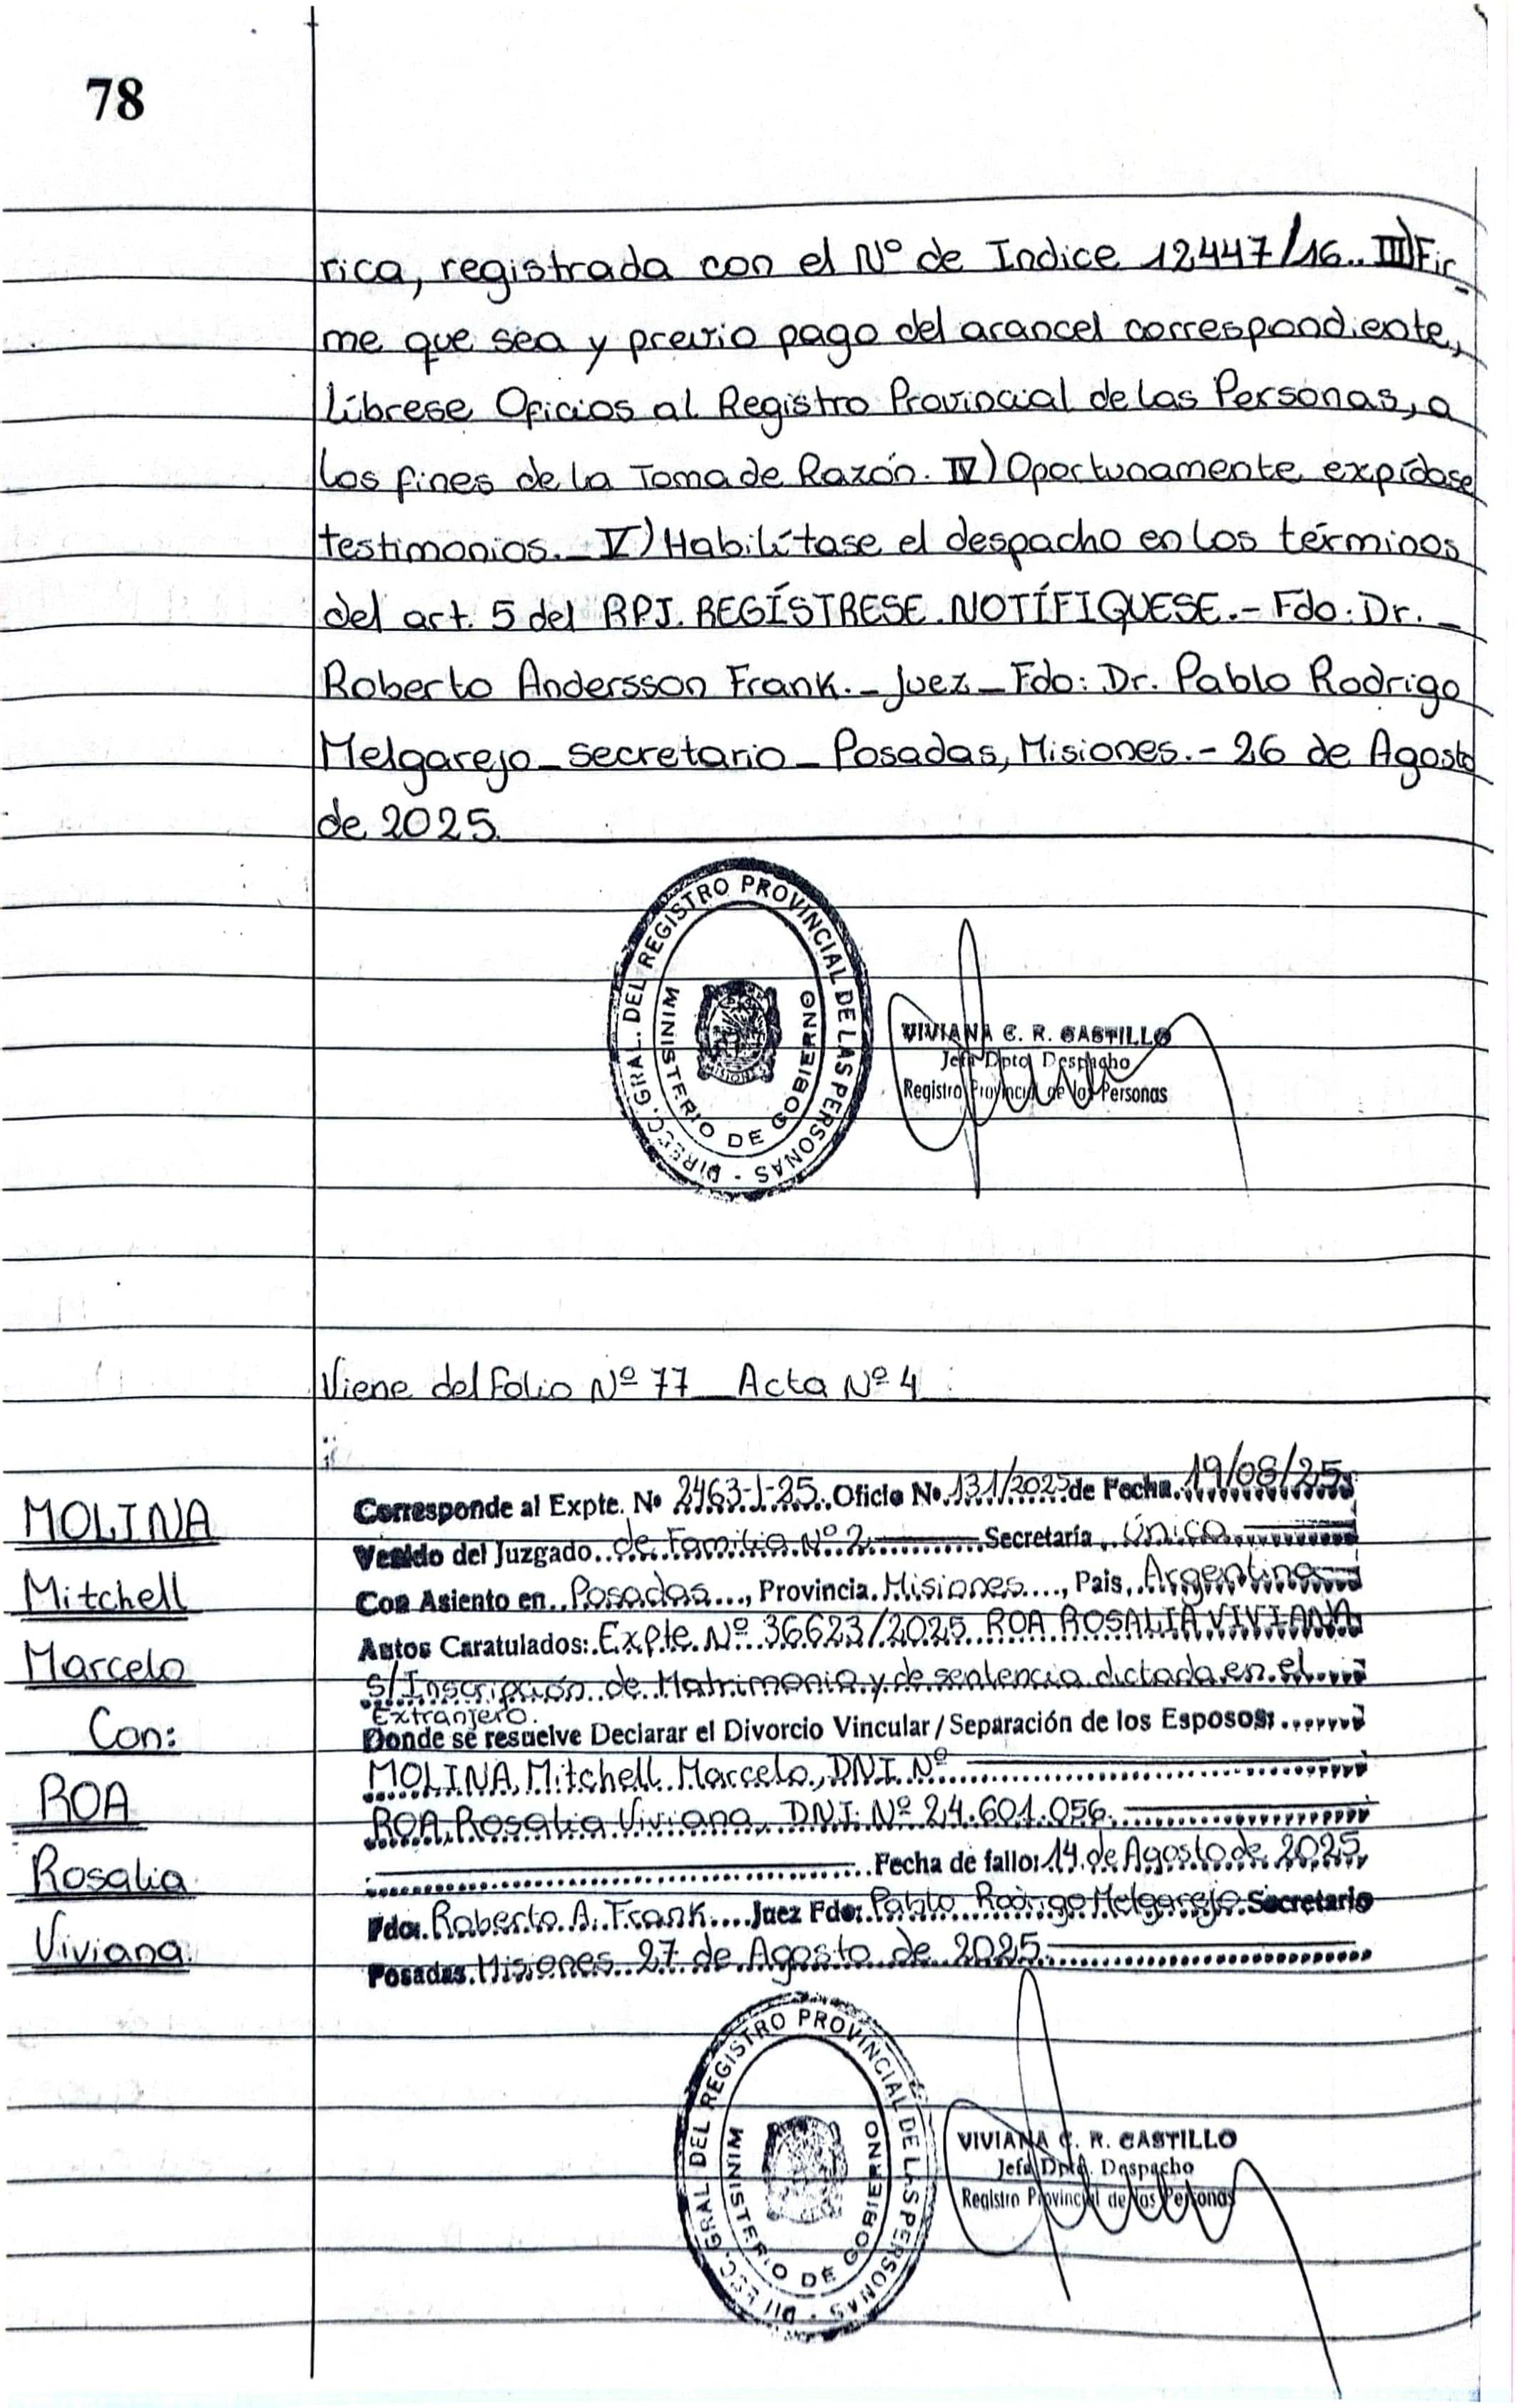 78
rica, registrada con el Nº de Indice 12447/16.. III) Fir-
me que sea y previo pago del arancel correspondiente,
líbrese Oficios al Registro Provincial de las Personas, a
los fines de la Toma de Razón. IV) Oportunamente expídase
testimonios._ V) Habilítase el despacho en los términos
del art. 5 del RPJ. REGÍSTRESE. NOTÍFIQUESE.- Fdo: Dr._
Roberto Andersson Frank._ Juez_ Fdo: Dr. Pablo Rodrigo
Melgarejo_ secretario_ Posadas, Misiones.- 26 de Agosto
de 2025.
DIRECC. GRAL. DEL REGISTRO PROVINCIAL DE LAS PERSONAS -
MINISTERIO DE GOBIERNO
MISIONES
VIVIANA C. R. CASTILLO
Jefa Dpto. Despacho
Registro Provincial de las Personas
Viene del Folio Nº 77_ Acta Nº 4
Corresponde al Expte. Nº 2463-J-25. Oficio Nº 131/2025 de Fecha 19/08/25
Venido del Juzgado de Familia Nº 2 Secretaría Única
Con Asiento en Posadas, Provincia Misiones, Pais, Argentina
Autos Caratulados: Expte. Nº 36623/2025 ROA ROSALIA VIVIANA
s/Inscripción de Matrimonio y de sentencia dictada en el
Extranjero.
Donde se resuelve Declarar el Divorcio Vincular/Separación de los Esposos:
MOLINA, Mitchell Marcelo, DNI. Nº
ROA, Rosalia Viviana, DNI: Nº 24.601.056.
Fecha de fallo: 14 de Agosto de 2025
Fdo: Roberto A. Frank Juez Fdo: Pablo Rodrigo Melgarejo Secretario
Posadas. Misiones 27 de Agosto de 2025.
MOLINA
Mitchell
Marcelo
Con:
ROA
Rosalia
Viviana.
DIRECC. GRAL. DEL REGISTRO PROVINCIAL DE LAS PERSONAS -
MINISTERIO DE GOBIERNO
VIVIANA C. R. CASTILLO
Jefa Dpto. Despacho
Registro Provincial de las Personas